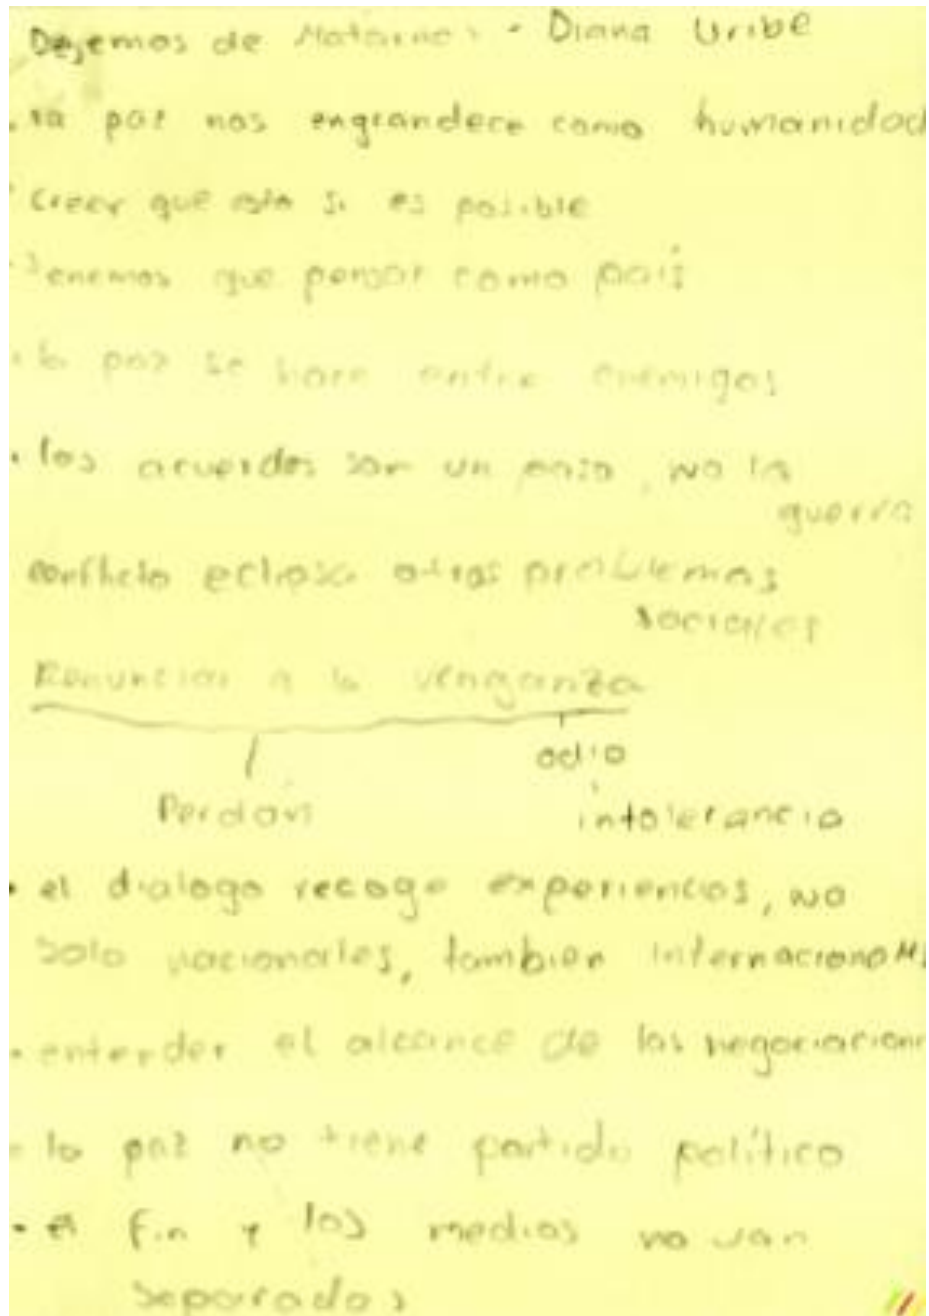 Dejemos de Matarnos - Diana Uribe
. la paz nos engrandece como humanidad
· Creer que esto si es posible
· Tenemos que pensar como país
· la paz se hace entre enemigos
· los acuerdos son un paso, no la
guerra
conflicto eclipsa otros problemas
sociales
Renunciar a la venganza
odio
Perdón intolerancia
· el dialogo recoge experiencias, no
solo nacionales, tambien internacionales
· entender el alcance de las negociaciones
· la paz no tiene partido político
· el fin y los medios no van
separados